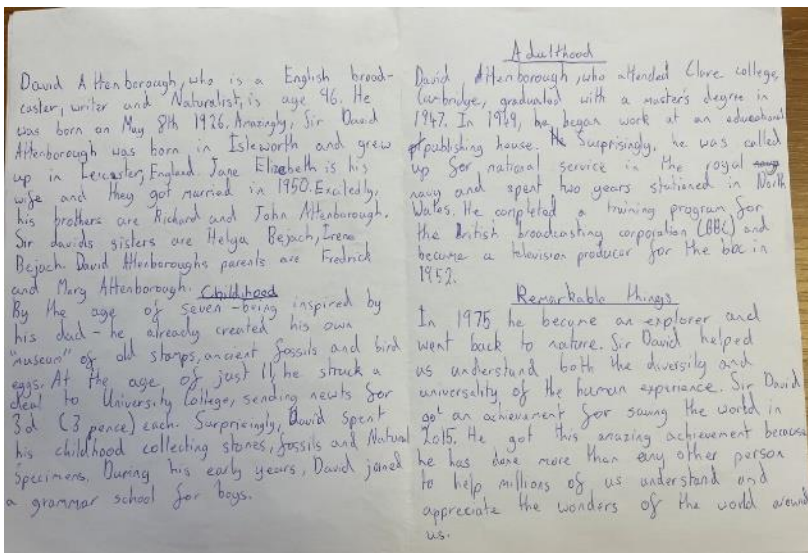 David Attenborough, who is a English broad-
caster, writer and Naturalist, is age 96. He
was born on May 8th 1926. Amazingly, Sir David
Attenborough was born in Isleworth and grew
up in Leicester, England. Jane Elizebeth is his
wife and they got married in 1950. Excitedly,
his brothers are Richard and John Attenborough.
Sir davids sisters are Helga Bejach, Irene
Bejach. David Attenboroughs parents are Fredrick
and Mary Attenborough.
Childhood
By the age of seven - being inspired by
his dad - he already created his own
"museum" of old stamps, ancient fossils and bird
eggs. At the age of just 11, he struck a
deal to University College, sending newts for
3d (3 pence) each. Surprisingly, David spent
his childhood collecting stones, fossils and Natural
Specimens. During his early years, David joined
a grammar school for boys.
Adulthood
David Attenborough, who attended Clare college,
Cambridge, graduated with a master's degree in
1947. In 1949, he began work at an educational
publishing house. He Surprisingly, he was called
up for national service in the royal
navy and spent two years stationed in North
Wales. He completed a training program for
the British broadcasting corporation (BBC) and
became a television producer for the bbc in
1952.
Remarkable things
In 1975 he became an explorer and
went back to nature. Sir David helped
us understand both the diversity and
universality of the human experience. Sir David
got an achievement for saving the world in
2015. He got this amazing achievement because
he has done more than any other person
to help millions of us understand and
appreciate the wonders of the world around
us.